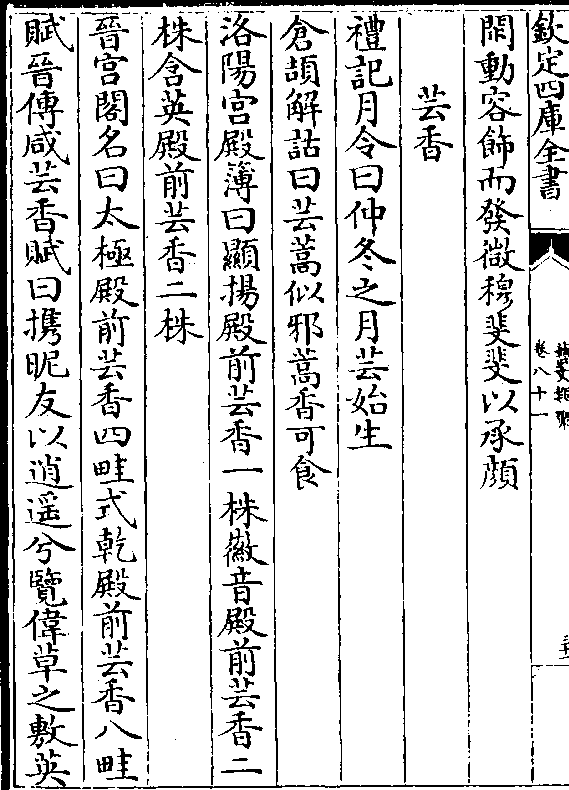 欽定四庫全書
藝文類聚
卷八十一
閑動容飾而發微穆斐斐以承顔
芸香
禮記月令曰仲冬之月芸始生
倉頡解詁曰芸蒿似邪蒿香可食
洛陽宫殿簿曰顯揚殿前芸香一株徽音殿前芸香二
株含英殿前芸香二株
晉宫閣名曰太極殿前芸香四畦式乾殿前芸香八畦
賦晉傅咸芸香賦曰携昵友以逍遥兮覽偉草之敷英